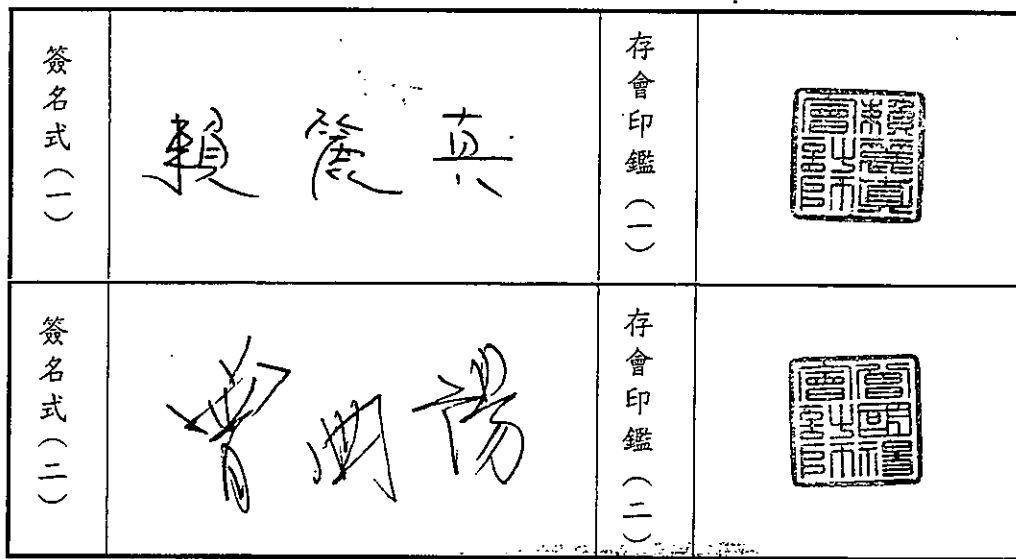 簽名式(一)
賴麗真
存會印鑑(一)
賴麗真會計師
簽名式(二)
曾國禓
存會印鑑(二)
曾國禓會計師